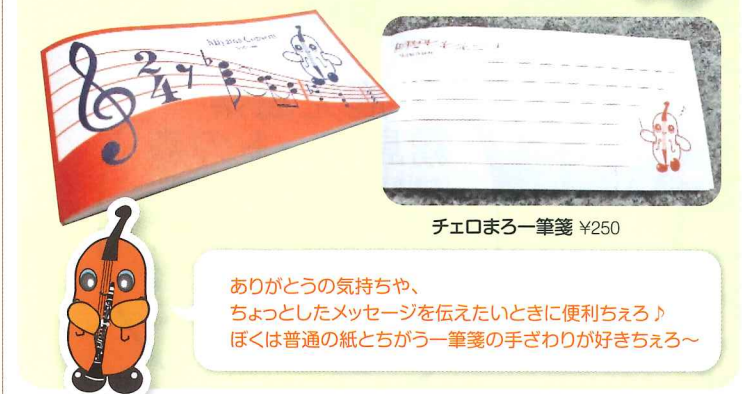 チェロまろ一筆箋 ¥250
ありがとうの気持ちや、
ちょっとしたメッセージを伝えたいときに便利ちぇろ♪
ぼくは普通の紙とちがう一筆箋の手ざわりが好きちぇろ～